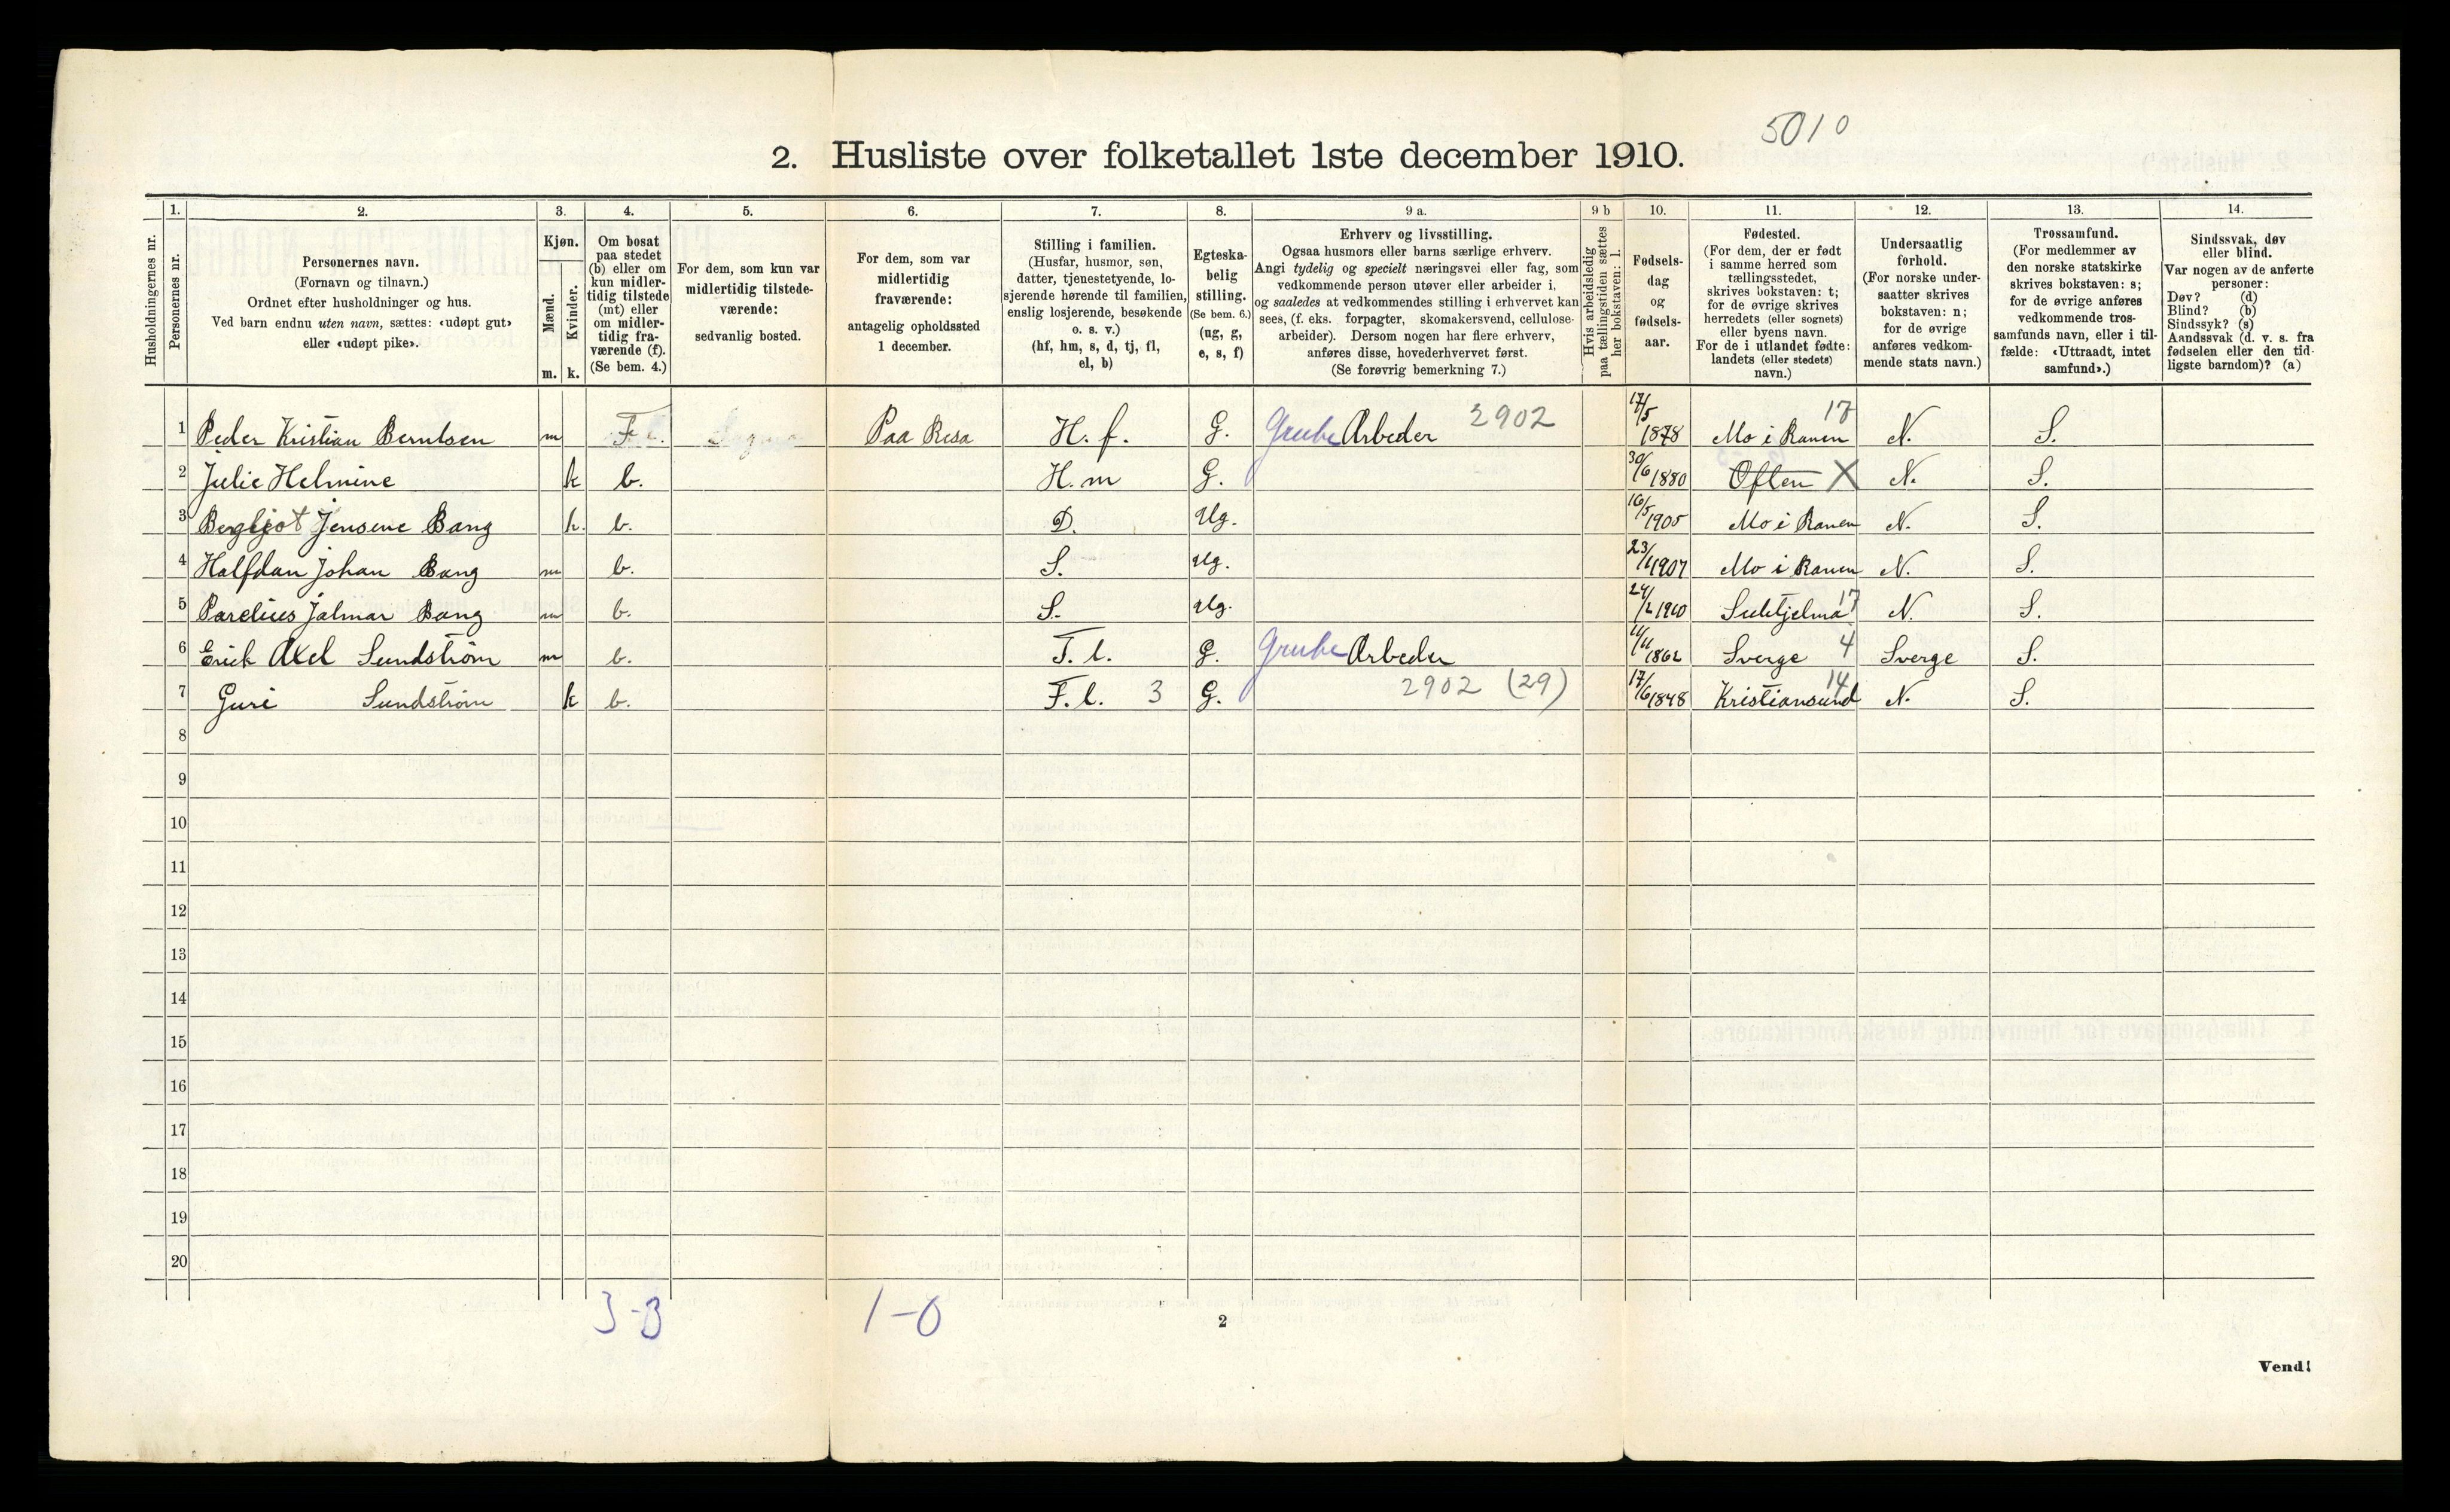 5010
2. Husliste over folketallet 1ste december 1910.
1. 2. 3. 4. 5. 6. 7. 8. 9 a. 9 b 10. 11. 12. 13. 14.
Husholdningernes nr.
Personernes nr.
Personernes navn.
(Fornavn og tilnavn.)
Ordnet efter husholdninger og hus.
Ved barn endnu uten navn, sættes: «udøpt gut»
eller «udøpt pike».
Kjøn.
Mænd.
Kvinder.
m. k.
Om bosat
paa stedet
(b) eller om
kun midler-
tidig tilstede
(mt) eller
om midler-
tidig fra-
værende (f).
(Se bem. 4.)
For dem, som kun var
midlertidig tilstede-
værende:
sedvanlig bosted.
For dem, som var
midlertidig
fraværende:
antagelig opholdssted
1 december.
Stilling i familien.
(Husfar, husmor, søn,
datter, tjenestetyende, lo-
sjerende hørende til familien,
enslig losjerende, besøkende
o. s. v.)
(hf, hm, s, d, tj, fl,
el, b)
Egteska-
belig
stilling.
(Se bem. 6.)
(ug, g,
e, s, f)
Erhverv og livsstilling.
Ogsaa husmors eller barns særlige erhverv.
Angi tydelig og specielt næringsvei eller fag, som
vedkommende person utøver eller arbeider i,
og saaledes at vedkommendes stilling i erhvervet kan
sees, (f. eks. forpagter, skomakersvend, cellulose-
arbeider). Dersom nogen har flere erhverv,
anføres disse, hovederhvervet først.
(Se forøvrig bemerkning 7.)
Hvis arbeidsledig
paa tællingstiden sættes
her bokstaven: l.
Fødsels-
dag
og
fødsels-
aar.
Fødested.
(For dem, der er født
i samme herred som
tællingsstedet,
skrives bokstaven: t;
for de øvrige skrives
herredets (eller sognets)
eller byens navn.
For de i utlandet fødte:
landets (eller stedets)
navn.)
Undersaatlig
forhold.
(For norske under-
saatter skrives
bokstaven: n;
for de øvrige
anføres vedkom-
mende stats navn.)
Trossamfund.
(For medlemmer av
den norske statskirke
skrives bokstaven: s;
for de øvrige anføres
vedkommende tros-
samfunds navn, eller i til-
fælde: «Uttraadt, intet
samfund».)
Sindssvak, døv
eller blind.
Var nogen av de anførte
personer:
Døv? (d)
Blind? (b)
Sindssyk? (s)
Aandssvak (d. v. s. fra
fødselen eller den tid-
ligste barndom)? (a)
1 Peder Kristian Berntsen m F Paa Resa H. f. G. Grube Arbeder 2902 17/5 1878 Mo i Ranen 17 N. S.
2 Julie Helmine k b. H. m G. 30/6 1880 Often X N. S.
3 Bergljot Jensene Bang k. b. D. Ug. 16/5 1905 Mo i Ranen N. S.
4 Halfdan Johan Bang m b. S. Ug. 23/1 1907 Mo i Ranen N. S.
5 Parelius Jalmar Bang m b. S. Ug. 24/2 1910 Sulitjelma 17 N. S.
6 Erick Axel Sundstrøm m b. F. l. G. Grube Arbeder 11/11 1862 Sverge 4 Sverge S.
7 Guri Sundstrøm k b. F. l. 3 G. 2902 (29) 17/6 1848 Kristiansund 14 N. S.
8
9
10
11
12
13
14
15
16
17
18
19
20
3-3 1-0
2
Vend!